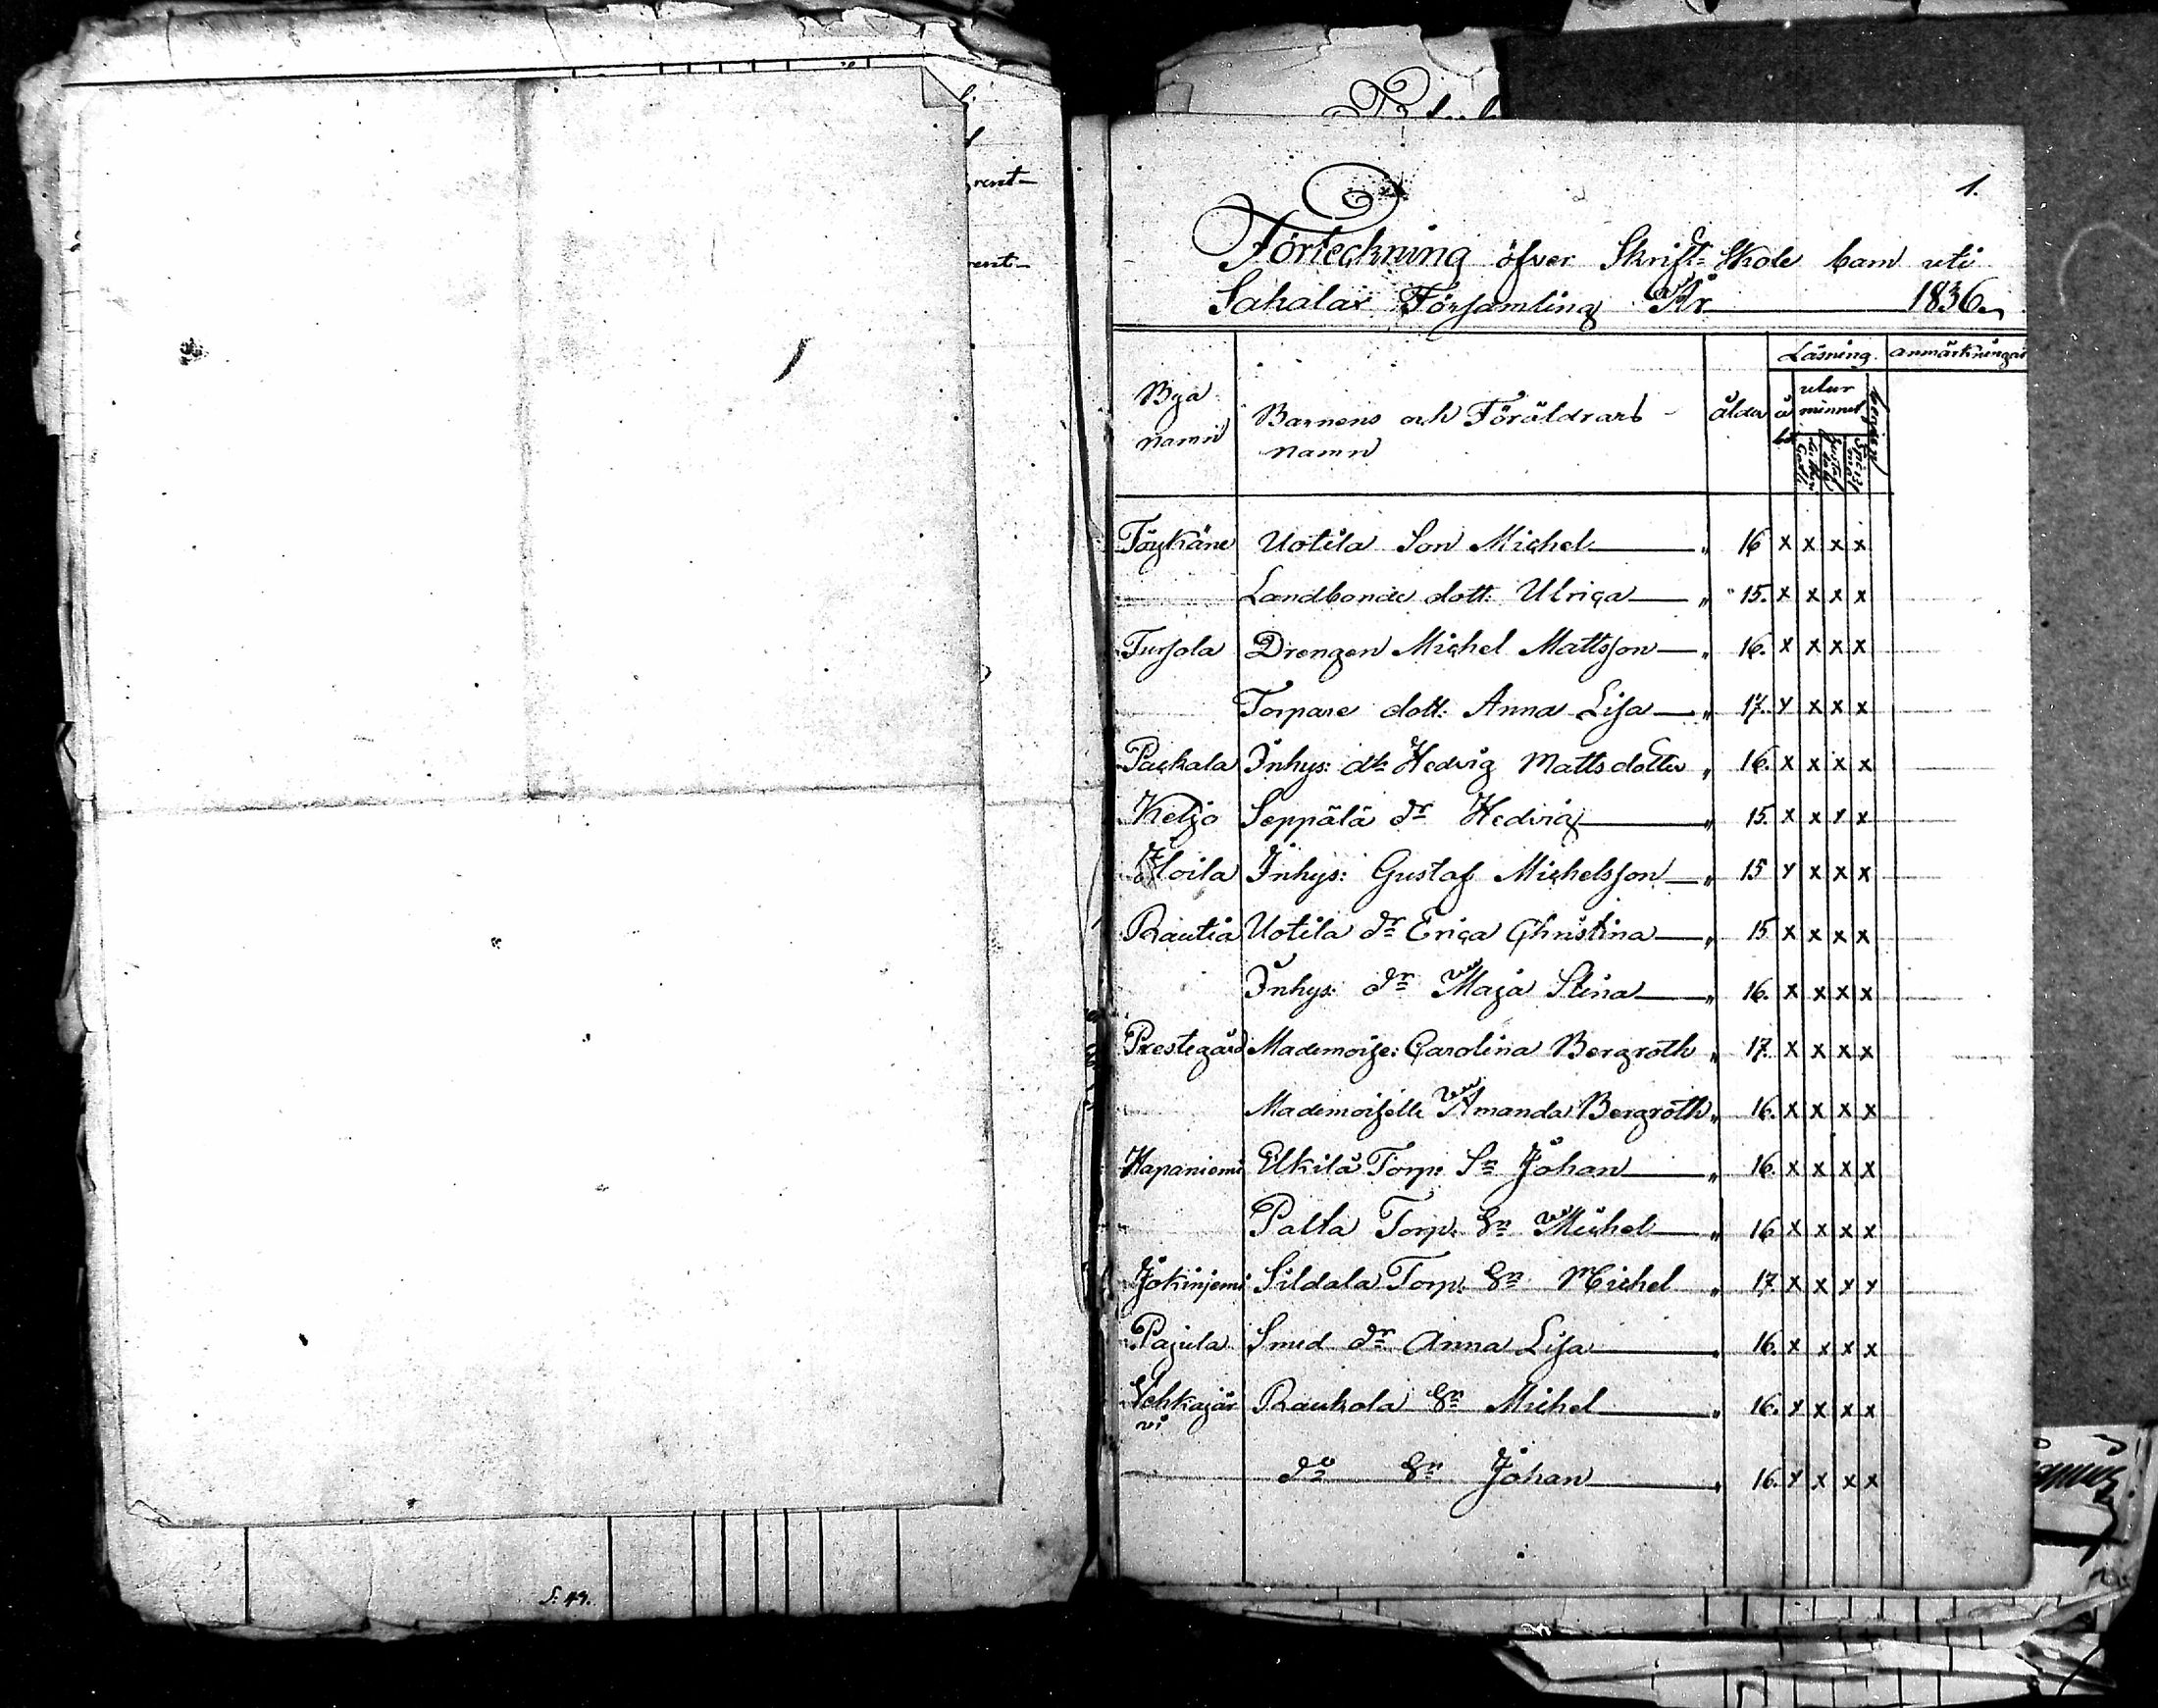 rent-
rent-
S. 49.
1.
Förteckning öfver Skrift-Skole barn uti
Sahalax Församling År 1836.
Bya namn | Barnens och Föräldrars namn | ålder | Läsning | anmärkningar
utur minnet
Töykäne Uotila Son Michel " 16 x x x x
Landbonde dott: Ulrica " 15. x x x x
Tursola Drengen Michel Mattsson " 16. x x x x
Torpare dott: Anna Lisa " 17. x x x x
Packala Inhys: dtr Hedvig Mattsdotter " 16. x x x x
Keljo Seppälä dr Hedvig " 15. x x x x
Hoila Inhys: Gustaf Michelsson " 15 x x x x
Rautia Uotila dr Erica Christina " 15 x x x x
Inhys: dr Maja Stina " 16. x x x x
Prestegård Mademoise: Carolina Bergroth " 17. x x x x
Mademoiselle Amanda Bergroth " 16. x x x x
Hapaniemi Eikilä Torp: Sn Johan " 16. x x x x
Palta Torp. Sn Michel " 16 x x x x
Jokiniemi Sildala Torp. Sn Michel " 17. x x x x
Pajula Smed dr Anna Lisa " 16. x x x x
Vehkajär Rauhola Sn Michel " 16. x x x x
vi
do Sn Johan " 16. x x x x